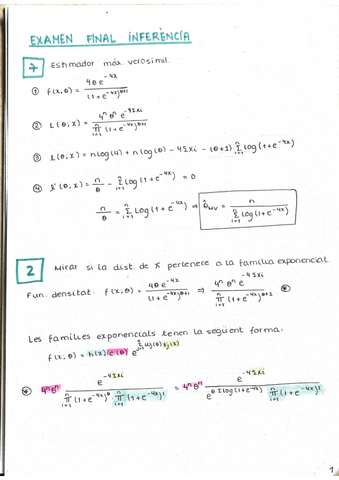 EXAMEN FINAL INFERÈNCIA
7 Estimador màx. versosimil.
① f(x,θ) = 4θe^{-4x} / (1+e^{-4x})^{θ+1}
② L(θ;x) = 4^n θ^n e^{-4Σxi} / ∏_{i=1}^{n} (1+e^{-4x})^{θ+1}
③ l(θ;x) = n log(4) + n log(θ) - 4Σxi - (θ+1) Σ_{i=1}^{n} log(1+e^{-4x})
④ l'(θ;x) = n/θ - Σ_{i=1}^{n} log(1+e^{-4x}) = 0
n/θ = Σ_{i=1}^{n} log(1+e^{-4x}) ⇒ θ̂_MV = n / Σ_{i=1}^{n} log(1+e^{-4x})
2 Mirar si la dist. de X pertenece a la familia exponencial.
Fun. densitat: f(x;θ) = 4θe^{-4x} / (1+e^{-4x})^{θ+1} ⇒ 4^n θ^n e^{-4Σxi} / ∏_{i=1}^{n} (1+e^{-4x})^{θ+1} ⊛
Les famílies exponencials tenen la següent forma:
f(x;θ) = h(x) c(θ) e^{Σ wj(θ) tj(x)}
⊛ 4^n θ^n e^{-4Σxi} / ∏_{i=1}^{n} (1+e^{-4x})^θ · ∏_{i=1}^{n} (1+e^{-4x})^1 = 4^n θ^n e^{-4Σxi} / e^{θ Σ log(1+e^{-4x})} ∏_{i=1}^{n} (1+e^{-4x})^1
1